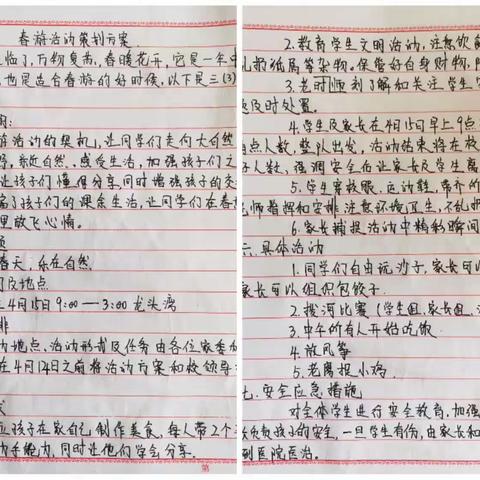 春游活动策划方案
临了,万物复苏,春暖花开,它是一年中
也是适合春游的好时候,以下是三(3)
:
游活动的契机,让同学们走向大自然
亲近自然、感受生活,加强孩子们之
让孩子们懂得分享,同时增强孩子的
富了孩子们的课余生活,让同学们在春
里放飞心情。
春天,乐在自然
及地点
4月15日9:00—3:00 龙头湾
排
地点、活动形式及任务由各位家委
在4月14日之前将活动方案和校领导
孩子在家自己制作美食,每人带2个
动手能力,同时让他们学会分享.
第
2.教育学生文明活动,注意饮
扔纸屑等杂物。保管好自身财物,
3.老师时刻了解和关注学生
及时处置。
4.学生及家长在4月15日早上9点
点人数,整队出发,活动结束将在
好人数,强调安全后让家长及学生离
5.学生穿校服、运动鞋,带齐
老师指挥和安排.注意环境卫生,不乱
6.家长捕捉活动中精彩瞬间
六、具体活动
1.同学们自由玩沙子,家长可以
家长可以组织包饺子.
2.拔河比赛(学生组、家长组、
3.中午所有人开始吃饭.
4.放风筝
5.老鹰捉小鸡.
七、安全应急措施
对全体学生进行安全教育,加强
负责孩子的安全,一旦学生有伤,由家长和
到医院医治。